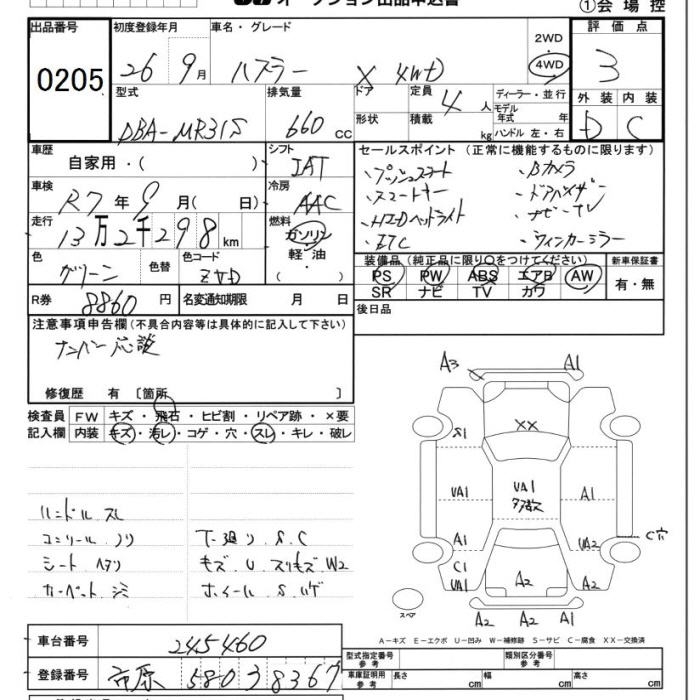 オークション出品申込書 ①会場控
出品番号 初度登録年月 車名・グレード 2WD 評価点
0205 26 9月 ハスラー X 4WD 4WD 3
型式 排気量 ドア 定員 4人 ディーラー・並行 外装 内装
DBA-MR31S 660 CC 形状 積載 kg モデル年式 年 D C
ハンドル 左・右
車歴 自家用・( ) シフト IAT セールスポイント (正常に機能するものに限ります)
・プッシュスタート ・Bカメラ
車検 R7年9月( 日) 冷房 AAC ・スマートキー ・ドアバイザー
走行 13万2千298km 燃料 ガソリン ・HIDヘッドライト ・ナビ・TV
軽・油 ・ETC ・ウィンカーミラー
( )
色 グリーン 色替 色コード ZVD 装備品(純正品に限り○をつけてください) 新車保証書
PS PW ABS エアB AW 有・無
SR ナビ TV カワ
R券 8860円 名変通知期限 月 日 後日品
注意事項申告欄(不具合内容等は具体的に記入して下さい)
ナンバー応談
修復歴 有 〔箇所 〕
検査員 FW キズ・飛石・ヒビ割・リペア跡・×要
記入欄 内装 キズ・汚レ・コゲ・穴・スレ・キレ・破レ
ハンドル スレ
コンソール ソリ 下廻り S.C
シート ヘタリ キズ.U.スリキズ W2
カーペット シミ ホイール S.ハゲ
A3 A1
XX
S1
UA1 UA1 A1
多数
A1 UA2 C穴
C1
UA1 A2 A2
スペア A2 A2 A1
A-キズ E-エクボ U-凹み W-補修跡 S-サビ C-腐食 XX-交換済
車台番号 245460
型式指定番号 参考 類別区分番号 参考
登録番号 市原 580 ヲ 8367
車庫証明用 参考 長さ cm 幅 cm 高さ cm